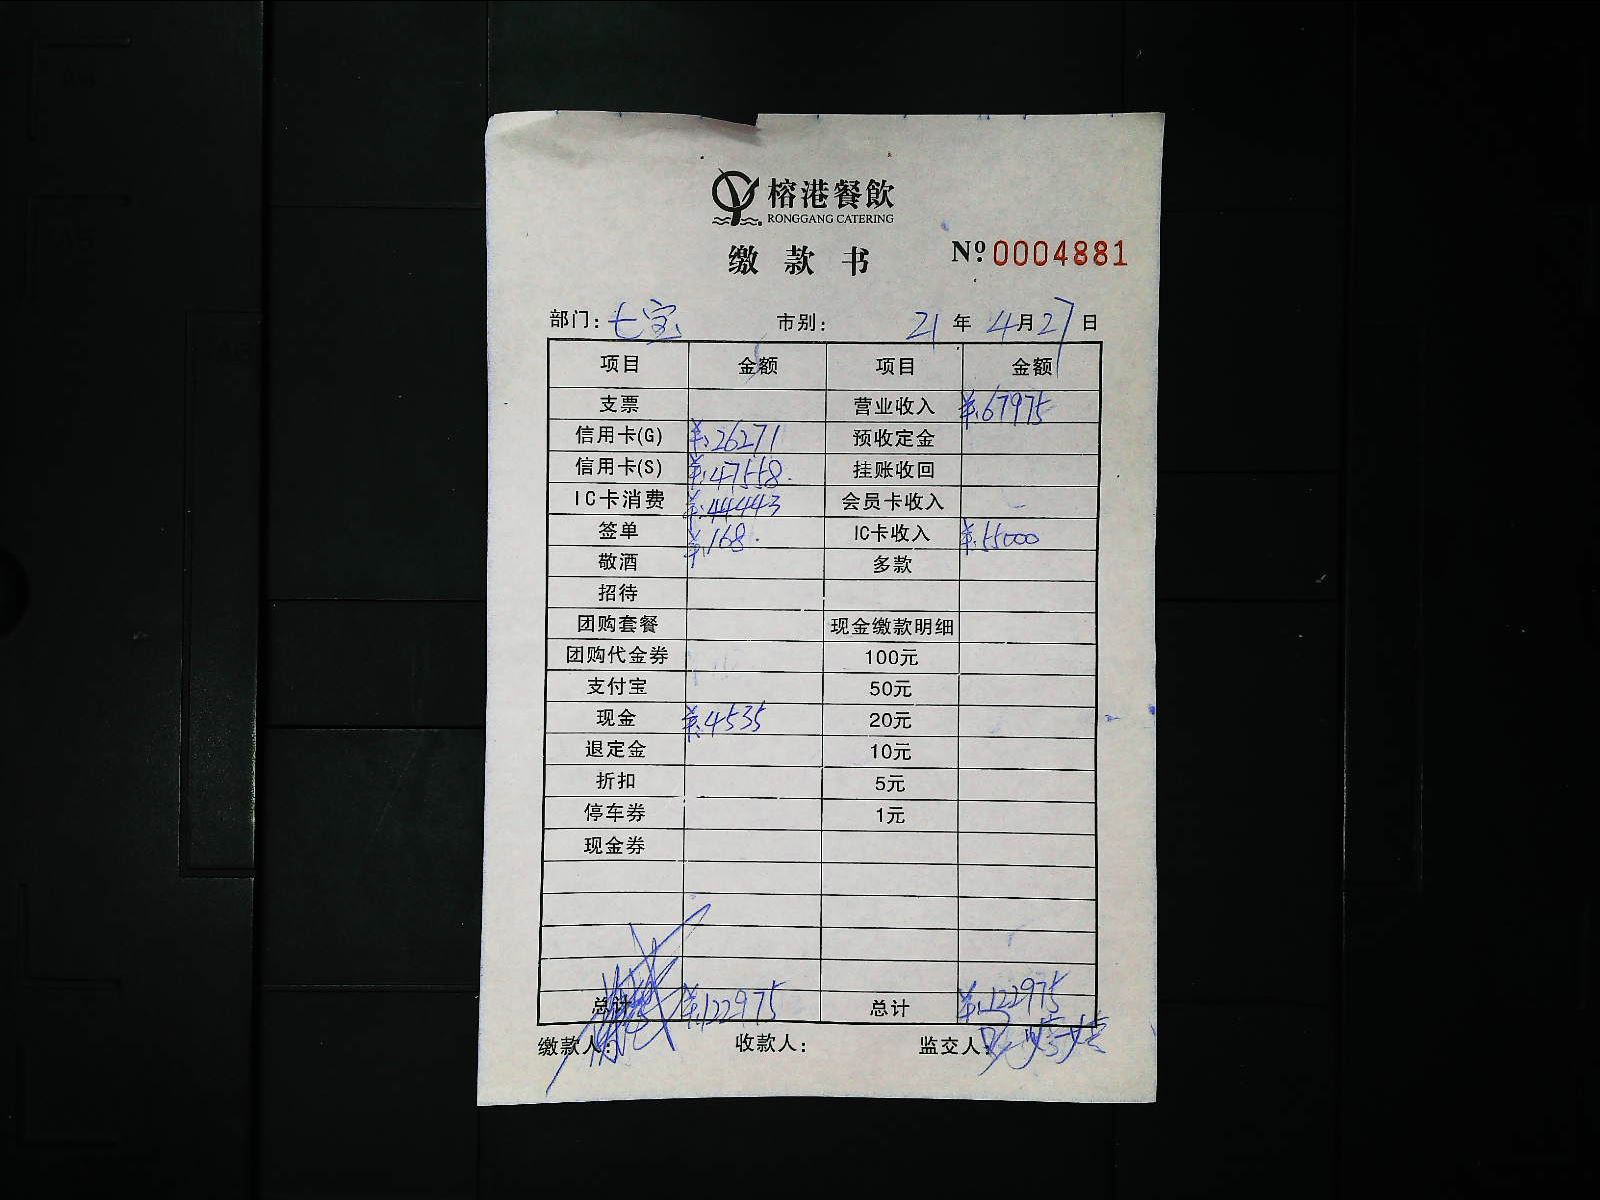 榕港餐飲
RONGGANG CATERING
缴款书 Nº 0004881
部门: 七宝 市别: 21年4月27日
项目 金额 项目 金额
支票 营业收入 ¥:67975
信用卡(G) ¥:26271 预收定金
信用卡(S) ¥:47558. 挂账收回
IC卡消费 ¥:44443 会员卡收入
签单 ¥:168. IC卡收入 ¥:55000
敬酒 多款
招待
团购套餐 现金缴款明细
团购代金券 100元
支付宝 50元
现金 ¥:4535 20元
退定金 10元
折扣 5元
停车券 1元
现金券
总计 ¥:122975 总计 ¥:122975
缴款人: 收款人: 监交人: